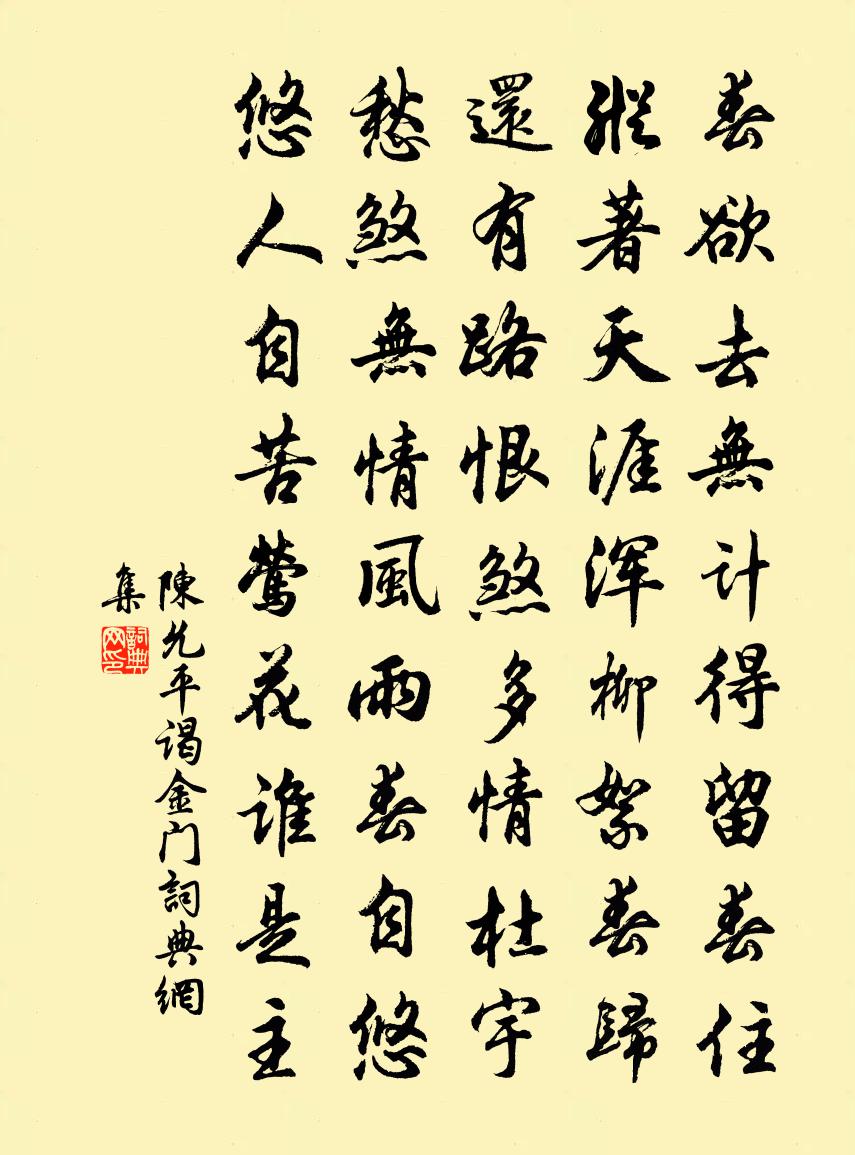 春欲去無計得留春住
縱著天涯浑柳絮春歸
還有路恨煞多情杜宇
愁煞無情風雨春自悠
悠人自苦鶯花誰是主
陳允平谒金门詞典網
集
詞典网印